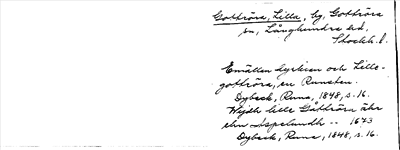 Gottröra, Lilla, by, Gottröra
sn, Långhundra hd,
Stockh. l.
Emellan kyrkan och Lilla-
gottröra, en Runsten.
Dybeck, Runa, 1848, s. 16.
Wejdh lille Gåttröra åhr
ehn Aspelundh -- 1673
Dybeck, Runa, 1848, s. 16.